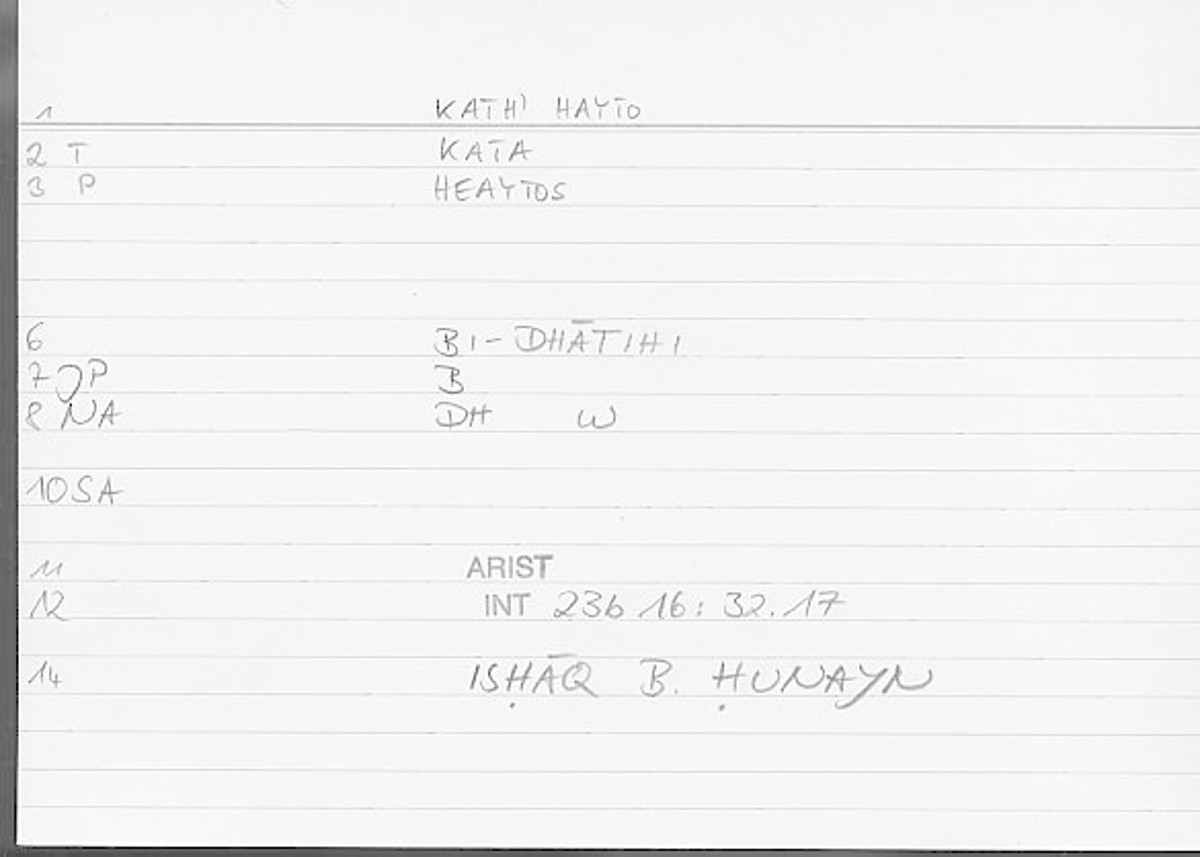 1 KATH' HAYTO
2 T KATA
3 P HEAYTOS
6 BI-DHĀTIHI
7 P B
8 NA DH W
10 SA
11 ARIST
12 INT 23b 16: 32.17
14 ISḤĀQ B. ḤUNAYN